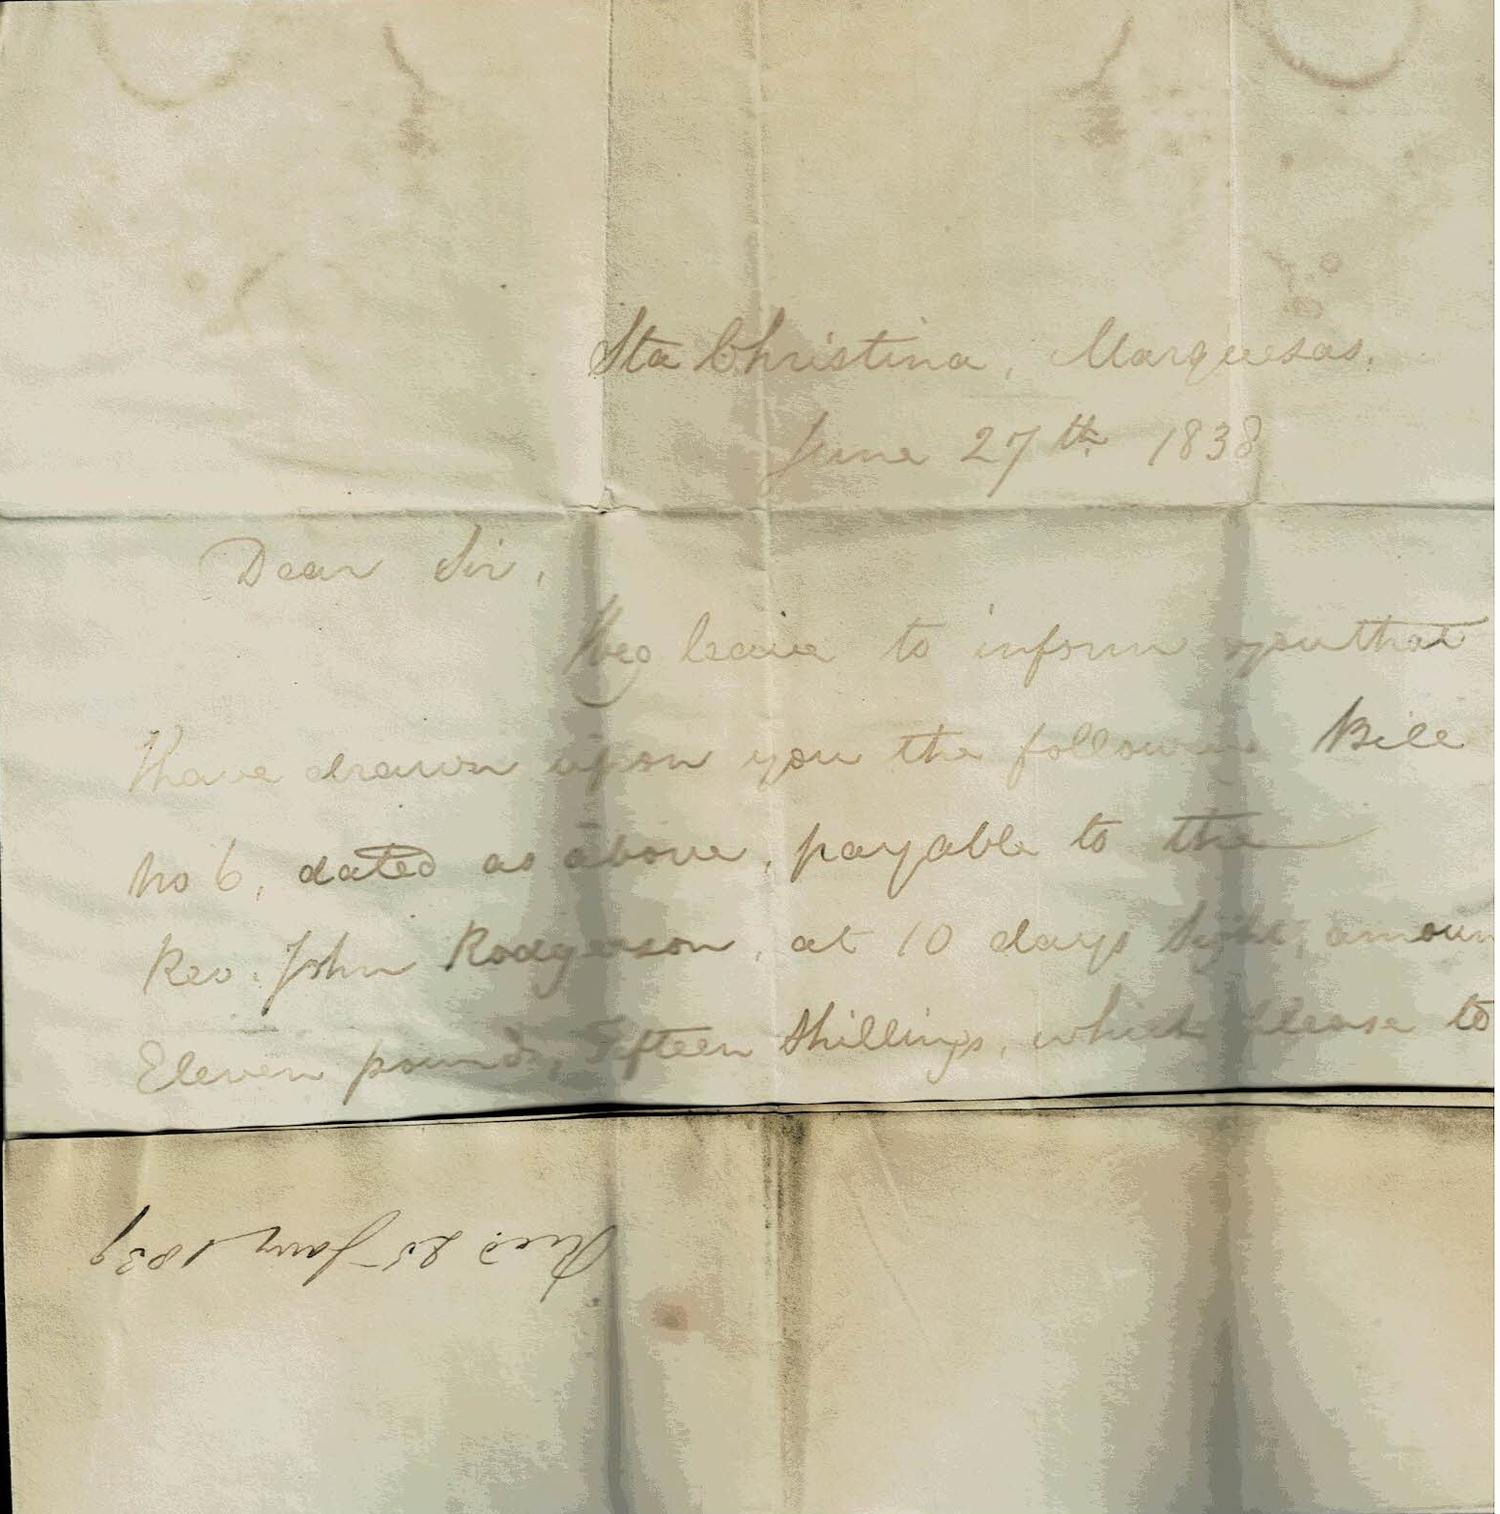 Sta Christina, Marquesas.
June 27th 1838
Dear Sir,
I beg leave to inform you that
I have drawn upon you the following Bill
No 6, dated as above, payable to the
Rev. John Rodgerson, at 10 days sight, amoun
Eleven pounds, Fifteen Shillings, which please to
Recd 25 Jany 1839